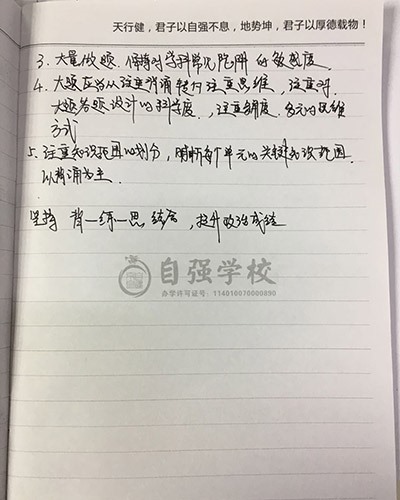 天行健，君子以自强不息，地势坤，君子以厚德载物！
3. 大量做题，保持对学科常见陷阱的敏感度
4. 大题应当从注重背诵转行注重思维，注重对
大题答题设计的科学度，注重角度，多元的思维
方式
5. 注重知识范围的划分，明晰每个单元的关键知识范围，
以背诵为主.
坚持 背一练一思 结合，提升政治成绩
自强学校
办学许可证号：114010070000880